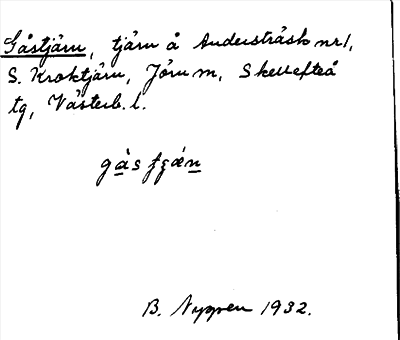 Gåstjärn, tjärn å Andersträsk nr 1,
S. Kroktjärn, Jörn m, Skellefteå
tg, Västerb. l.
gàs
B. Nygren 1932.